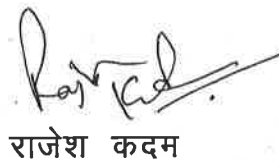 राजेश कदम